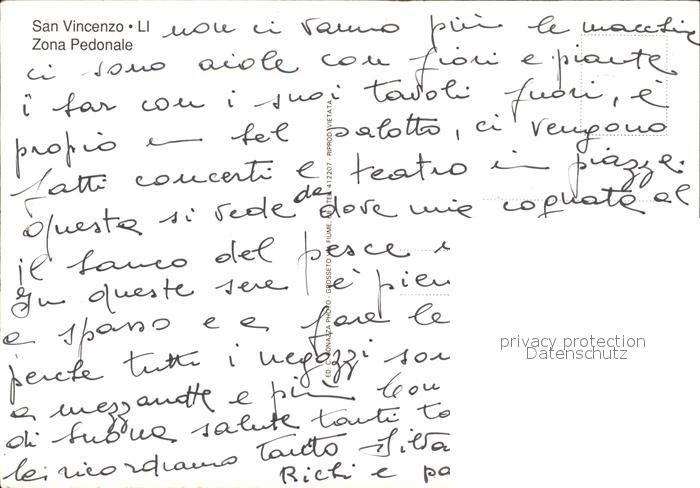 San Vincenzo • LI
Zona Pedonale
non ci vanno più le macchine
ci sono aiole con fiori e piante
i bar con i suoi tavoli fuori, è
proprio un bel salotto, ci vengono
fatti concerti e teatro in piazza.
Questa si vede da dove mia cognata al
il banco del pesce
In queste sere è pien
a spasso e a fare le
perche tutti i negozzi son
a mezzanotte e più
di buona salute tanti
la ricordiamo tanto Silva
Richi e
ED. CORONAZZA PHOTO - GROSSETO - VIA FIUME, 412207 - RIPROD. VIETATA
privacy protection
Datenschutz